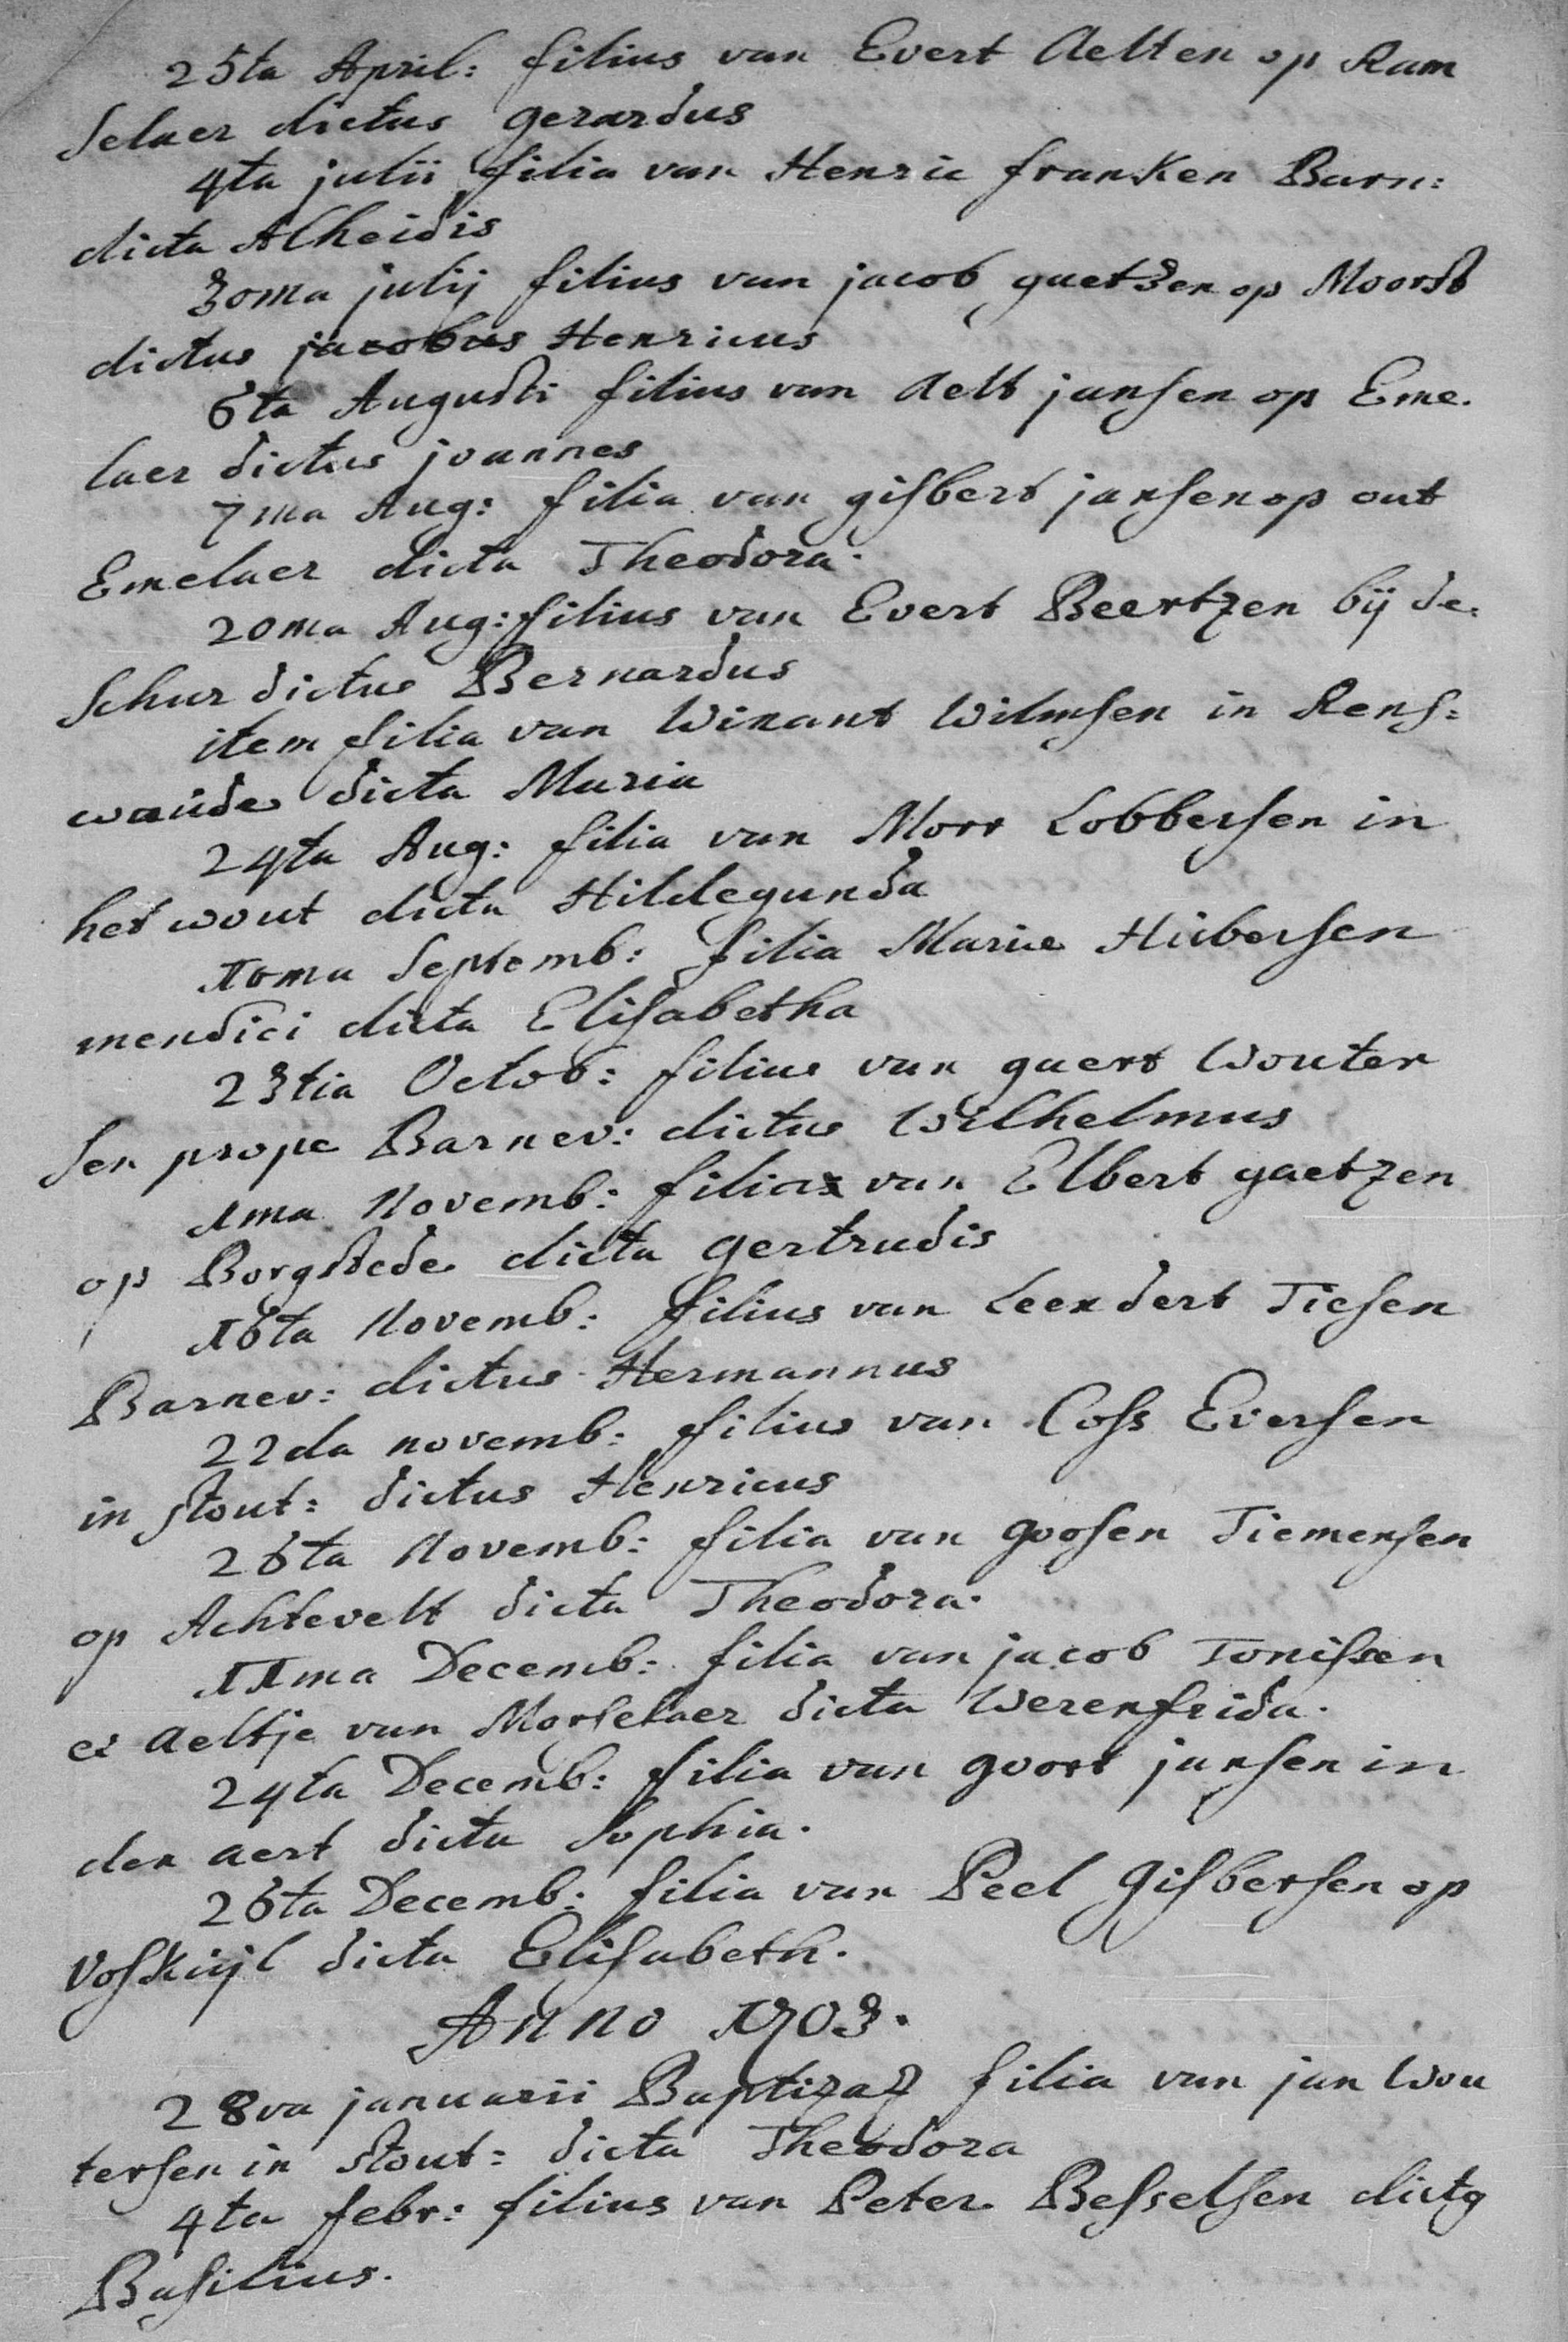 25ta April: filius van Evert Aelten op Ram
selaer dictus gerardus
4ta julii filia van Henric franken Barn:
dicta Alheidis
30ma julij filius van jacob gaetzen op Moorst
dictus jacobus Henricus
6ta Augusti filius van Aelt jansen op Eme.
laer dictus joannes
7ma Aug: filia van gisbert jansen op out
Emelaer dicta Theodora.
20ma Aug: filius van Evert Beertzen bij de
schur dictus Bernardus
item filia van Winant Wilmsen in Rens:
waüde dicta Maria
24ta Aug: filia van Morr Lobbersen in
het wout dicta Hildegunda
10ma Septemb: filia Marie Hübersen
mendici dicta Elisabetha
23tia Octob: filius van gaert Wouter
sen prope Barnev: dictus Wilhelmus
1ma Novemb: filia van Elbert gaetzen
op Borgstede dicta gertrudis
16ta Novemb: filius van Leendert Tiesen
Barnev: dictus Hermannus
22da novemb: filius van Coss Eversen
in stout: dictus Henricus
26ta Novemb: filia van goosen Tiemensen
op Achtevelt dicta Theodora.
11ma Decemb: filia van jacob Tonissen
et Aeltje van Morselaer dicta Werenfrida.
24ta Decemb: filia van goort jansen in
den aert dicta Sophia.
26ta Decemb: filia van Peel Gisbersen op
Voskuijl dicta Elisabeth.
Anno 1703.
28va januarii Baptizaz filia van jan Wou
tersen in stout: dicta Theodora
4ta febr: filius van Peter Besselsen dictg
Basilius.